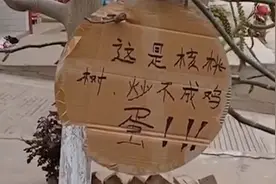 这是核桃
树、炒不成鸡
蛋!!!